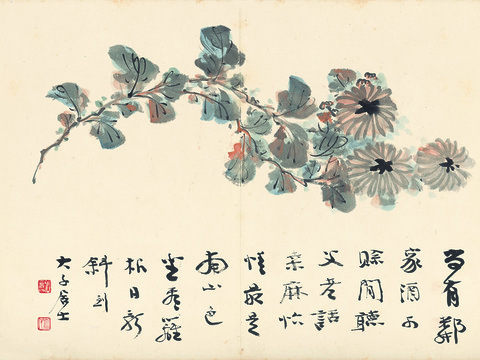 尚有鄰
家酒可
賒閒聽
父老話
桑麻怡
情最是
南山色
坐看籬
根日影
斜
大千居士